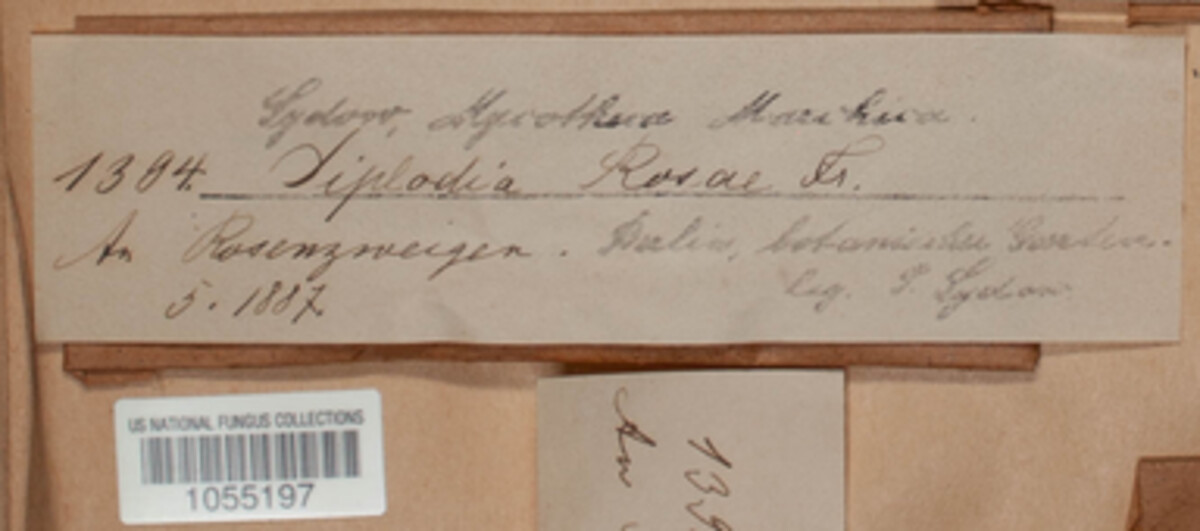 Sydow, Mycotheca Marchica.
1394. Diplodia Rosae Fr.
An Rosenzweigen. Berlin, botanischer Garten.
5. 1887. leg. P. Sydow
US NATIONAL FUNGUS COLLECTIONS
1055197
139
An